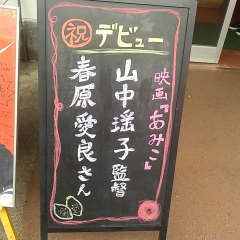 祝デビュー
映画『あみこ』
山中瑶子監督
春原愛良さん